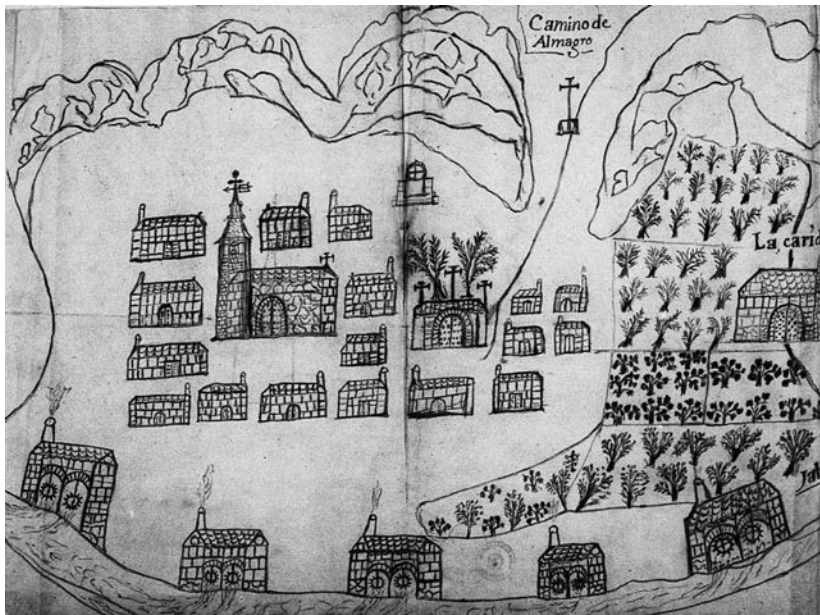 Camino de
Almagro
La, carid
Jab